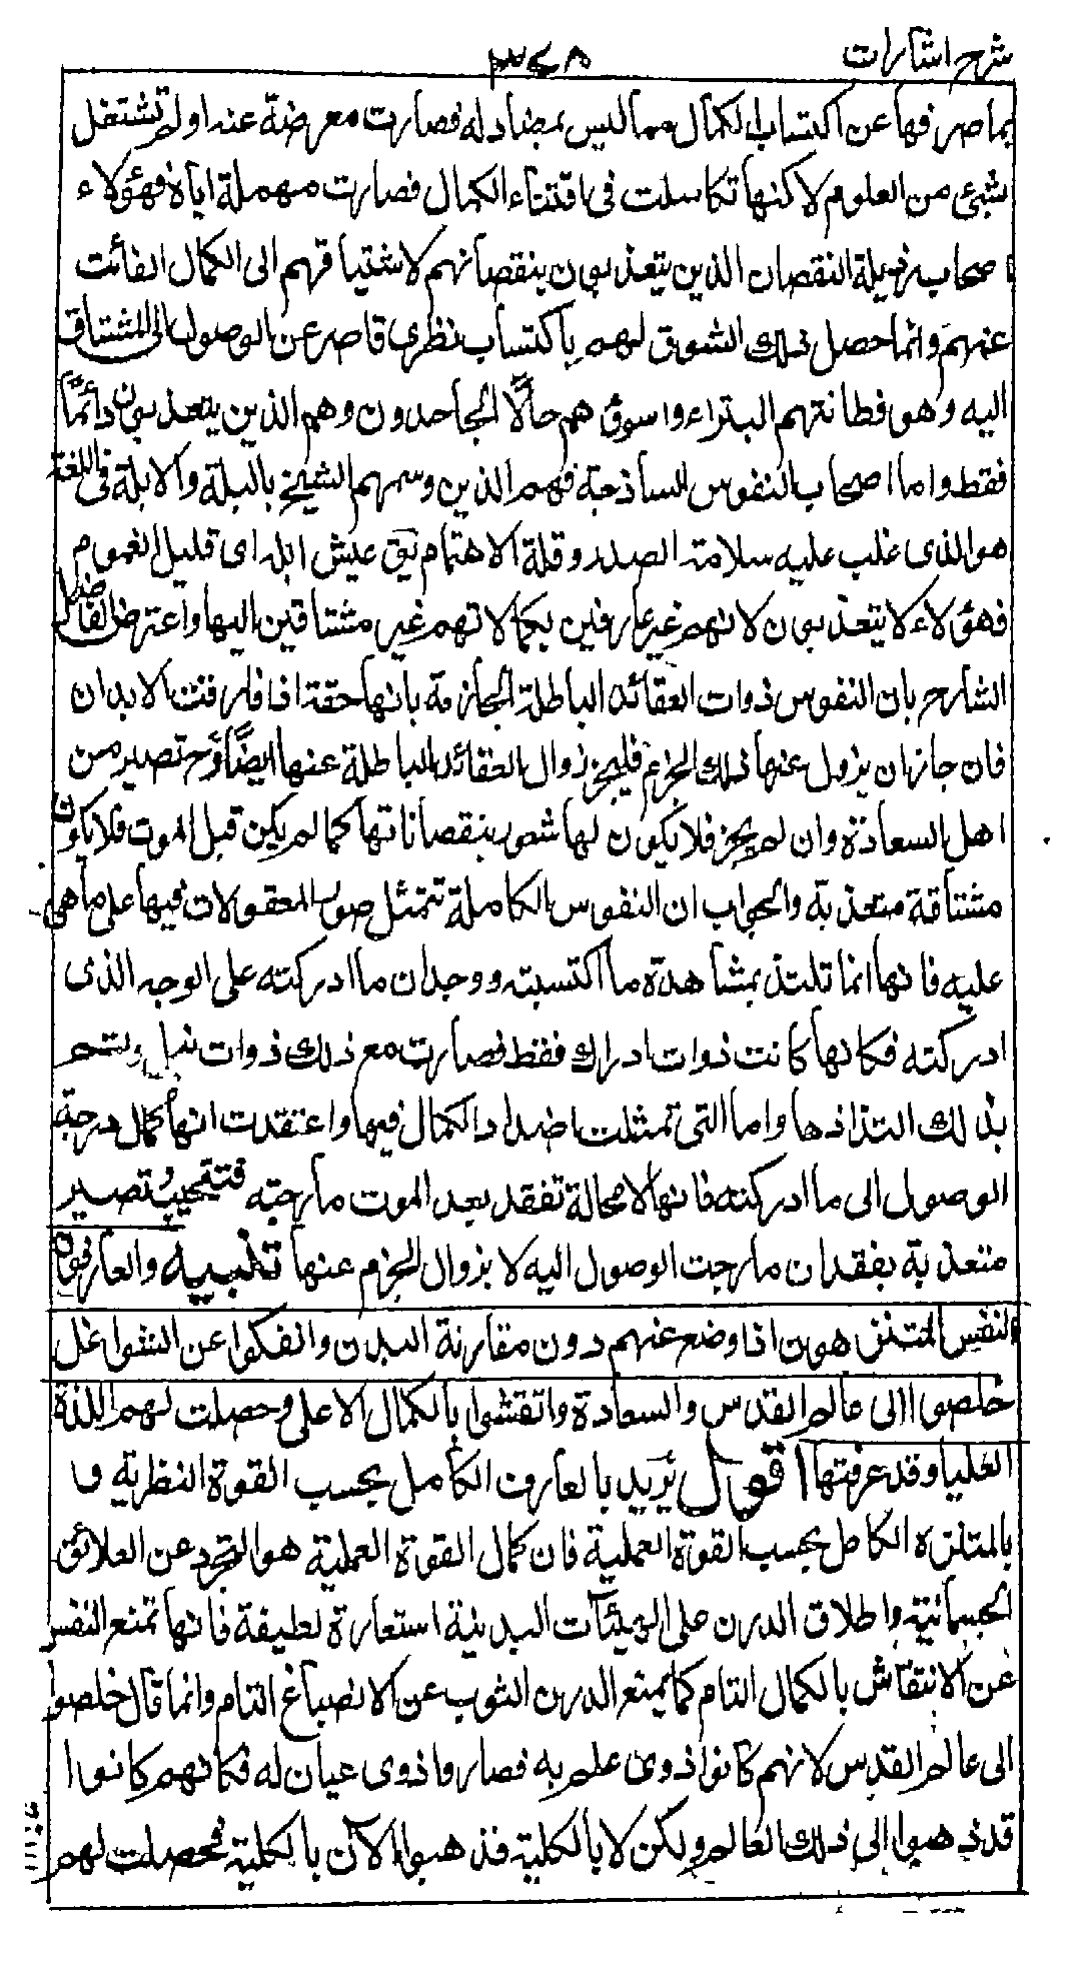 شرح اشارات
٣٤٨
بما صرفها عن اكتساب الكمال مما ليس بمضاد له فصارت معرضة عنه او لم تشتغل
بشئ من العلوم لاكنها تكاسلت فى اقتناء الكمال فصارت مهملة اياه فهؤلاء
اصحاب رذيلة النقصان الذين يتعذبون بنقصانهم لاشتياقهم الى الكمال الفائت
عنهم وانما حصل ذلك الشوق لهم باكتساب نظرى قاصر عن الوصول الى المشتاق
اليه وهو فطانتهم البتراء واسوؤهم حالًا الجاحدون وهم الذين يتعذبون دائمًا
فقط واما اصحاب النفوس الساذجة فهم الذين وسمهم الشيخ بالبلة والابلة فى اللغة
هو الذى غلب عليه سلامته الصدر وقلة الاهتمام يق عيش ابله اى قليل الغموم
فهؤلاء لا يتعذبون لانهم غير عارفين بكمالاتهم غير مشتاقين اليها واعترض الفاضل
الشارح بان النفوس ذوات العقائد الباطلة الجازمة بانها حقة اذا فارقت الابدان
فان جاز ان يزول عنها ذلك الجزم فليجز زوال العقائد الباطلة عنها ايضًا وح تصير من
اهل السعادة وان لم يجز فلا يكون لها شعور بنقصاناتها كما لم يكن قبل الموت فلا يكون
مشتاقة متعذبة والجواب ان النفوس الكاملة تتمثل صور المعقولات فيها على ما هى
عليه فانها انما تلتذ بمشاهدة ما اكتسبته ووجدان ما ادركته على الوجه الذى
ادركته فكانها كانت ذوات ادراك فقط فصارت مع ذلك ذوات نيل ويتم
بذلك التذاذها واما التى تمثلت اضداد الكمال فيها واعتقدت انها كمال درجة
الوصول الى ما ادركته فانها لا محالة تفقد بعد الموت ما رجته فتخيب وتصير
متعذبة بفقدان ما رجت الوصول اليه لا بزوال الجزم عنها تنبيه والعارفون
المتنزهون اذا وضع عنهم درن مقارنة البدن وانفكوا عن الشواغل
خلصوا الى عالم القدس والسعادة وانتقشوا بالكمال الاعلى وحصلت لهم اللذة
العليا وقد عرفتها اقول يريد بالعارف الكامل بحسب القوة النظرية و
بالمتنزه الكامل بحسب القوة العملية فان كمال القوة العملية هو التجرد عن العلائق
الجسمانية واطلاق الدرن على الهيئآت البدنية استعارة لطيفة فانها تمنع النفس
عن الانتقاش بالكمال التام كما يمنع الدرن الثوب عن الانصباغ التام وانما قال خلصوا
الى عالم القدس لانهم كانوا ذوى علم به فصاروا ذوى عيان له فكانهم كانوا
قد ذهبوا الى ذلك العالم ولكن لا بالكلية فذهبوا الآن بالكلية فحصلت لهم